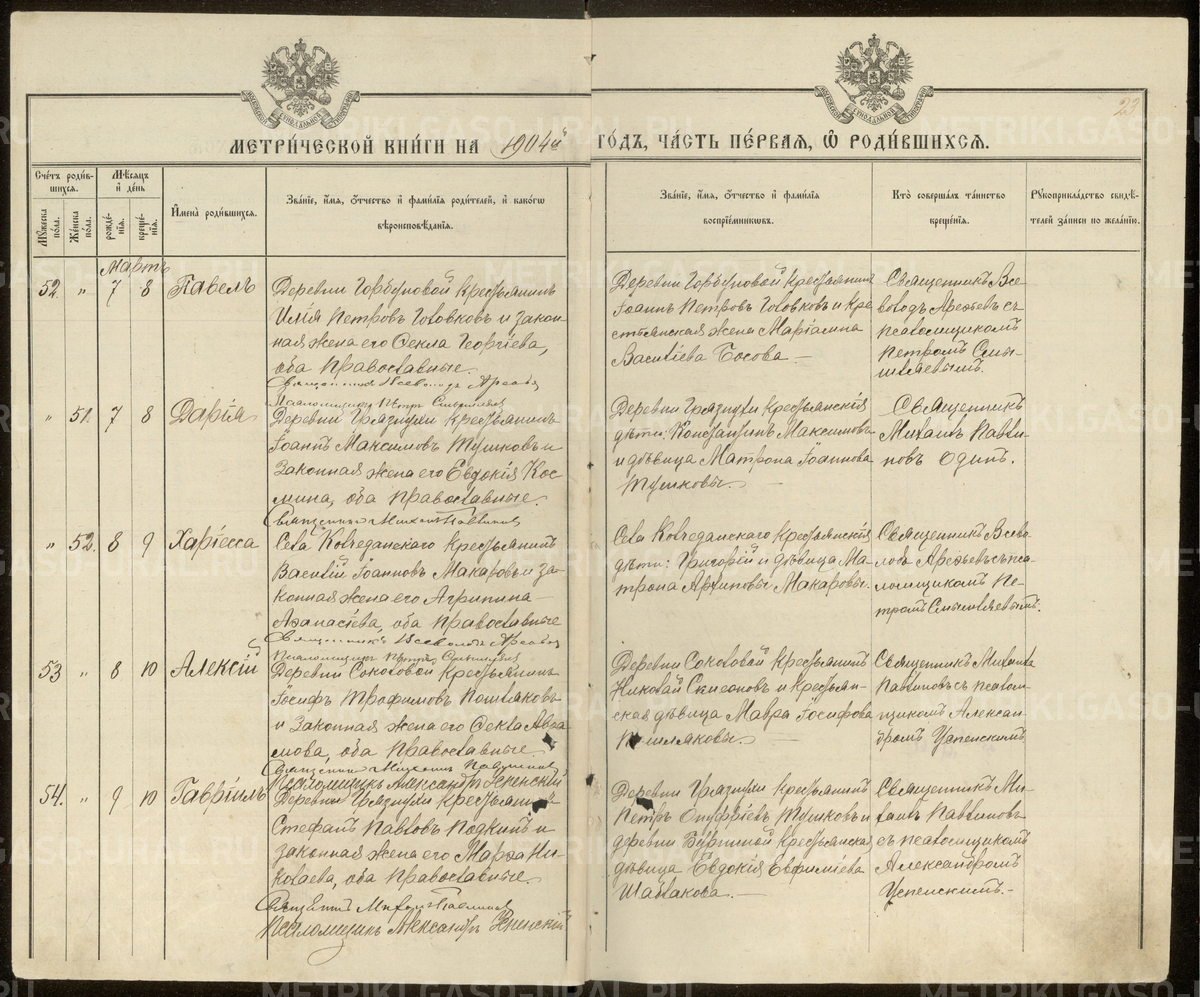 23
МЕТРИ́ЧЕСКОЙ КНИ́ГИ НА 1904й ГО́ДЪ, ЧА́СТЬ ПЕ́РВАЯ, Ѡ РОДИ́ВШИХСЯ.
Сче́тъ роди́вшихся.
Мꙋжеска по́ла.
Же́нска по́ла.
Мѣ́сяцъ и де́нь
рожде́нія.
креще́нія.
Имена̀ роди́вшихся.
Зва́ніе, и́мя, о́тчество и фами́лія роди́телей, и како́гѡ
вѣроисповѣ́данія.
Зва́ніе, и́мя, о́тчество и фами́лія
воспріе́мникѡвъ.
Кто̀ соверша́лъ та́инство
креще́нія.
Рꙋкоприкла́дство свидѣ́телей за́писи по жела́нію.
Мартъ
52. " 7 8 Павелъ
Деревни Горбуновой Крестьянинъ
Илія Петровъ Головковъ и закон-
ная жена его Ѳекла Георгіева,
оба Православные.
Священникъ Всеволодъ Арефьевъ
Псаломщикъ Петръ
Деревни Горбуновой Крестьянинъ
Іоаннъ Петровъ Головковъ и Кре-
стьянская жена Маріамна
Василіева Босова. —
Священникъ Все-
володъ Арефьевъ съ
псаломщикомъ
Петромъ Смы-
шляевымъ.
" 51. 7 8 Дарія
Деревни Грязнухи Крестьянинъ
Іоаннъ Максимовъ Тушковъ и
Законная жена его Евдокія Кос-
мина, оба Православные.
Священникъ Михаилъ Павлиновъ
Деревни Грязнухи Крестьянскія
дѣти: Константинъ Максимовъ
и дѣвица Матрона Іоаннова
Тушковы. —
Священникъ
Михаилъ Павли-
новъ одинъ.
" 52. 8 9 Харіесса
Села Колчеданскаго Крестьянинъ
Василій Іоанновъ Макаровъ и за-
конная жена его Агрипина
Аѳанасіева, оба Православные
Священникъ Всеволодъ Арефьевъ
Псаломщикъ Петръ
Села Колчеданскаго Крестьянскія
дѣти: Григорій и дѣвица Ма-
трона Архиповы Макаровы.
Священникъ Всево-
лодъ Арефьевъ съ пса-
ломщикомъ Пе-
тромъ Смышляевымъ.
53 " 8 10 Алексій
Деревни Соколовой Крестьянинъ
Іосифъ Трофимовъ Пошляковъ
и Законная жена его Ѳекла Авра-
мова, оба Православные
Священникъ Михаилъ Павлиновъ
Псаломщикъ Александръ Успенскій
Деревни Соколовой Крестьянинъ
Николай Симеоновъ и Крестьян-
ская дѣвица Мавра Іосифова
Пошляковы. —
Священникъ Михаилъ
Павлиновъ съ псалом-
щикомъ Алексан-
дромъ Успенскимъ
54. " 9 10 Гавріилъ
Деревни Грязнухи Крестьянинъ
Стефанъ Павловъ Подкинъ и
законная жена его Марѳа Ни-
колаева, оба Православные.
Священникъ Михаилъ Павлиновъ
Псаломщикъ Александръ Успенскій
Деревни Грязнухи Крестьянинъ
Петръ Онуфріевъ Тушковъ и
деревни Бурниной Крестьянская
дѣвица Евдокія Евфиміева
Шаблакова. —
Священникъ Ми-
хаилъ Павлиновъ
съ псаломщикомъ
Александромъ
Успенскимъ. —
METRIKI.GASO-URAL.RU